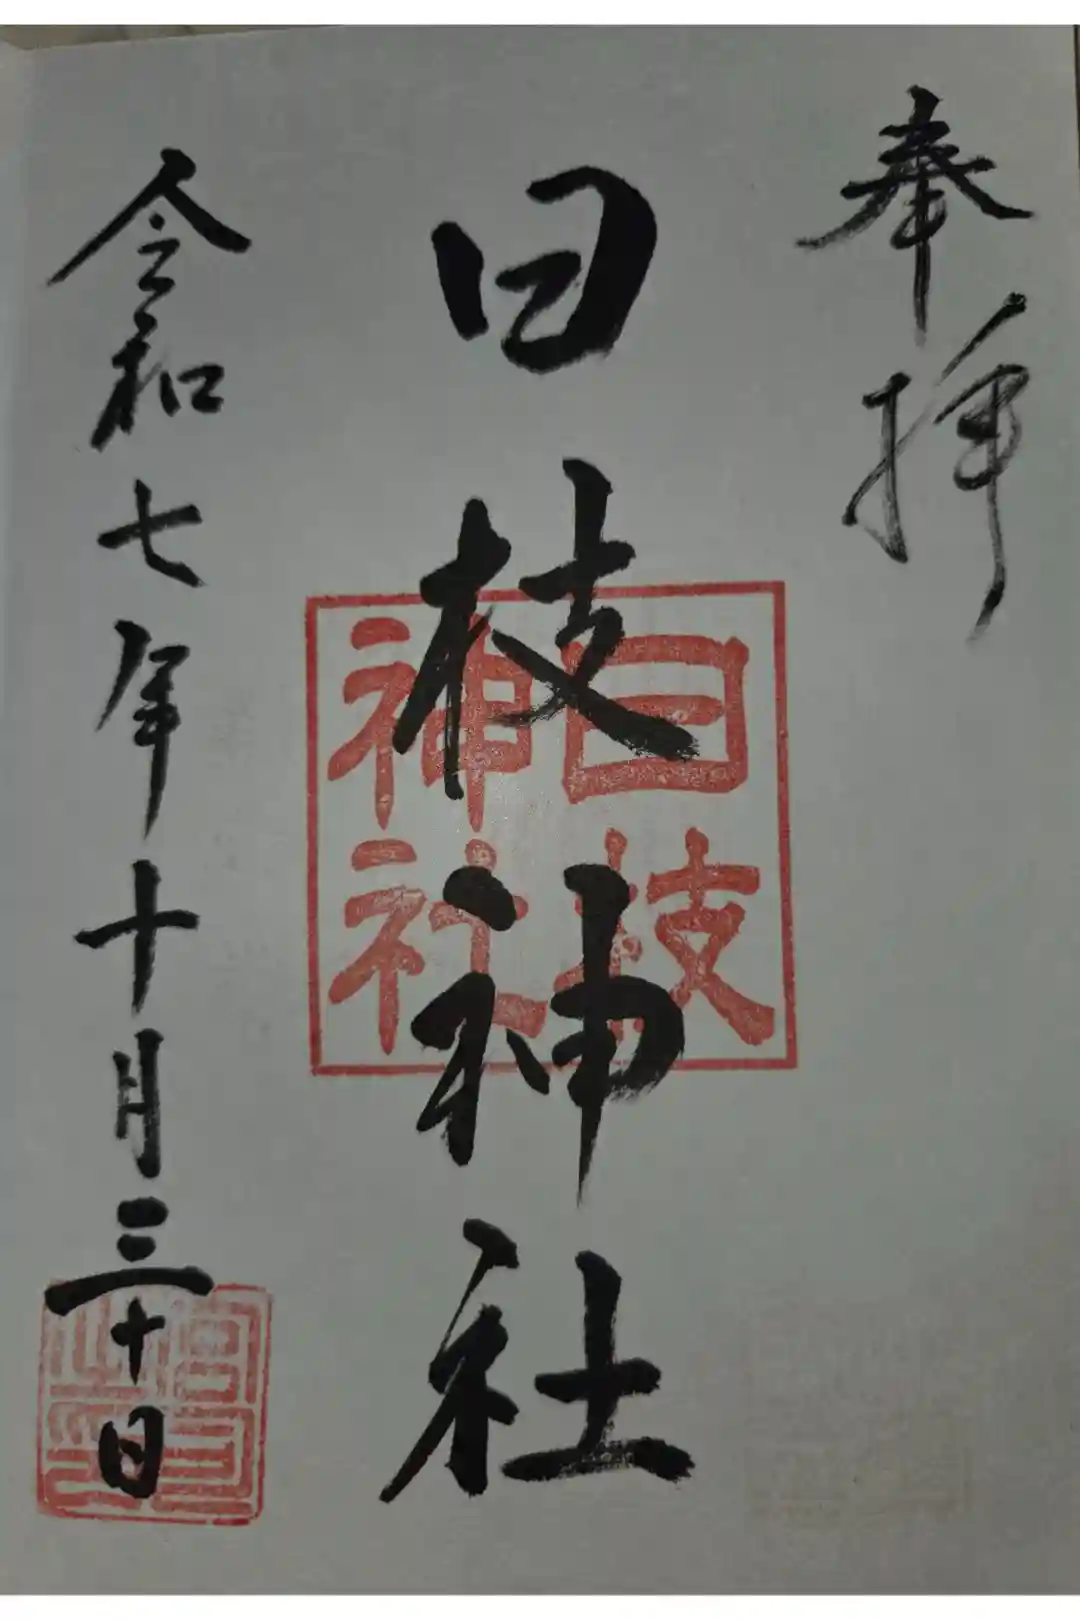 奉拝
日枝神社
日枝
神社
令和七年十月三十日